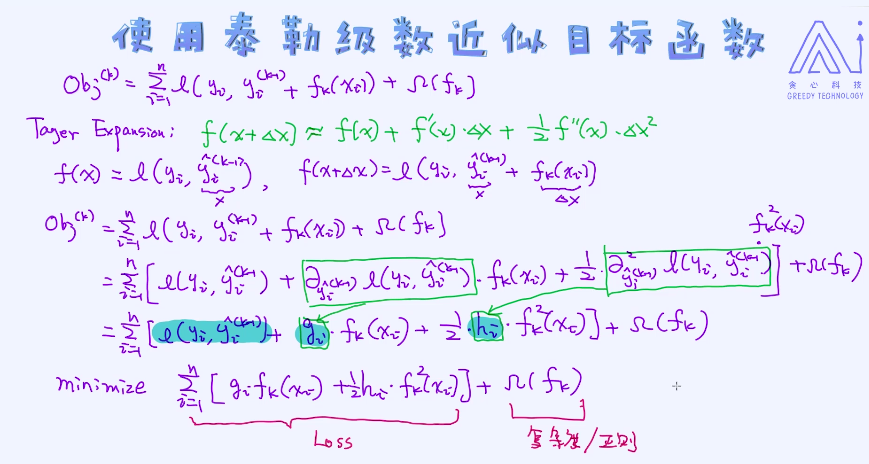 使用泰勒级数近似目标函数
贪心科技
GREEDY TECHNOLOGY
Obj^(k) = Σ_{i=1}^{n} l(y_i, y_i^(k-1) + f_k(x_i)) + Ω(f_k)
Tayer Expansion: f(x+Δx) ≈ f(x) + f'(x)·Δx + 1/2 f''(x)·Δx²
f(x) = l(y_i, ŷ_i^(k-1)), f(x+Δx) = l(y_i, ŷ_i^(k-1) + f_k(x_i))
x x Δx
Obj^(k) = Σ_{i=1}^{n} l(y_i, y_i^(k-1) + f_k(x_i)) + Ω(f_k)
f_k²(x_i)
= Σ_{i=1}^{n} [l(y_i, ŷ_i^(k-1)) + ∂_{ŷ_i^(k-1)} l(y_i, ŷ_i^(k-1)) · f_k(x_i) + 1/2 · ∂²_{ŷ_i^(k-1)} l(y_i, ŷ_i^(k-1))] + Ω(f_k)
= Σ_{i=1}^{n} [l(y_i, ŷ_i^(k-1)) + g_i · f_k(x_i) + 1/2 · h_i · f_k²(x_i)] + Ω(f_k)
minimize Σ_{i=1}^{n} [g_i f_k(x_i) + 1/2 h_i · f_k²(x_i)] + Ω(f_k)
Loss 复杂度/正则